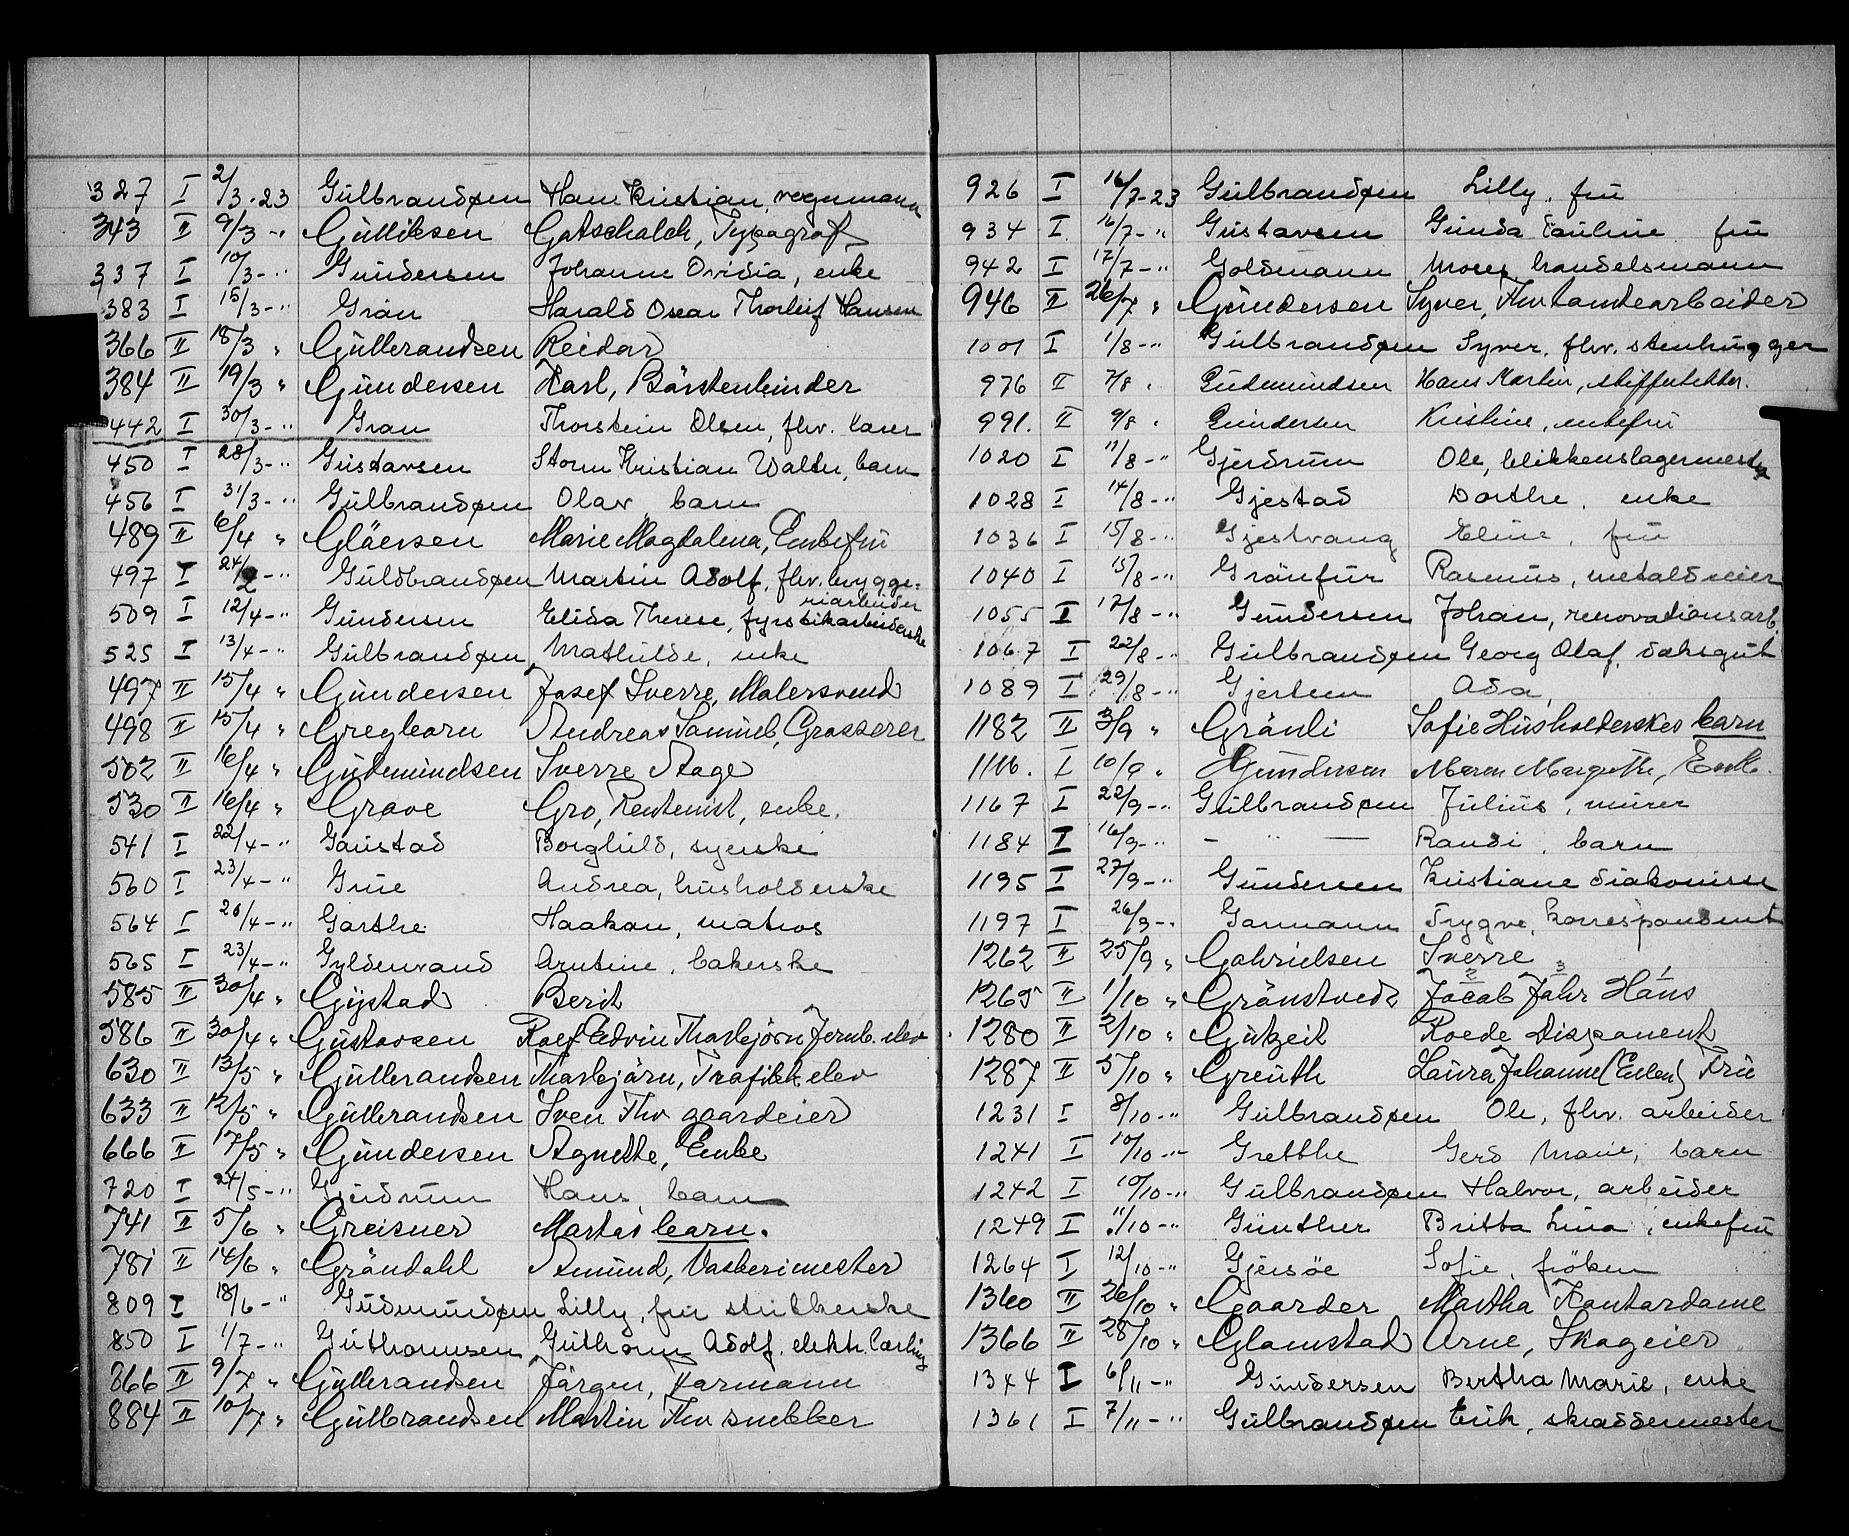 327 I 2/3-23 Gulbrandsen Hans Kristian, vognmann
343 II 9/3 -" Gulliksen Gotschalck, Typograf
337 I 10/3 -" Gundersen Johanne Ovidia, enke
383 I 15/3 -" Gran Harald Oscar Thorleif Hansen
366 II 18/3 " Gulbrandsen Reidar
384 II 19/3 " Gundersen Karl, Børstenbinder
442 I 30/3 -" Gran Thorstein Olsen, fhv. lærer
450 I 28/3 -" Gustavsen Storm Kristian Walter, barn
456 I 31/3 -" Gulbrandsen Olav barn
489 II 6/4 " Gläersen Marie Magdalena, Enkefru
497 I 24/2 -" Guldbrandsen Martin Adolf, fhv. brygge-
riarbeider
509 I 12/4 -" Gundersen Elida Therese, fyrstikarbeiderske
525 I 13/4 -" Gulbrandsen Mathilde, enke
497 II 15/4 " Gundersen Josef Sverre, Malersvend
498 II 15/4 " Gregborn Andreas Samuel, Grosserer
502 II 16/4 " Gudmundsen Sverre Aage
530 II 16/4 " Grave Gro, Rentenist, enke.
541 I 22/4 -" Gaustad Borghild, syerske
560 I 23/4 -" Grue Andrea, husholderske
564 I 20/4 -" Garthe Haakon, matros
565 I 23/4 -" Gyldenrand Arntine, bakerske
585 II 30/4 " Gystad Berit
586 II 30/4 " Gustavsen Rolf Edvin Thorbjørn Jernb. elev
630 II 13/5 " Gulbrandsen Thorbjørn, Trafikk elev
633 II 12/5 " Gulbrandsen Sven Thv gaardeier
666 II 17/5 " Gundersen Agnethe, Enke
720 I 24/5 -" Gjerdrum Hans barn
741 II 5/6 " Greisner Martas barn.
781 II 14/6 " Grøndahl Amund, Vaskerimester
809 I 18/6 -" Gudmundsen Lilly, fru strikkerske
850 I 1/7 -" Guthormsen Guthorm Adolf, elektr. lærling
866 II 9/7 " Gulbrandsen Jørgen, Formann
884 II 10/7 " Gulbrandsen Martin Thv snekker
926 I 16/7-23 Gulbrandsen Lilly, fru
934 I 16/7 -" Gustavsen Gunda Pauline fru
942 I 17/7 -" Goldmann Moses handelsmann
946 II 26/7 " Gundersen Syver, Thv tomtearbeider
1001 I 1/8 -" Gulbrandsen Syver, fhv. stenhugger
976 II 7/8 " Gudmundsen Hans Martin,
991. II 9/8 " Gundersen Kristine, enkefru
1020 I 11/8 -" Gjerdrum Ole, blikkenslagermester
1028 I 14/8 -" Gjestad Dorthe, enke
1036 I 15/8 -" Gjestvang Eline, fru
1040 I 15/8 -" Grönfur Rasmus, metaldreier
1055 I 17/8 -" Gundersen Johan, renovationsarb
1067 I 22/8 -" Gulbrandsen Georg Olaf, daksgut
1089 I 29/8 -" Gjertsen Ada,
1182 II 3/9 " Grønli Sofie Husholderskes barn
1116. I 10/9 " Gundersen Maren Margrethe, Enke.
1167 I 22/9 -" Gulbrandsen Julius, murer
1184 I 16/9 -" - " - Randi, barn
1195 I 27/9 -" Gundersen Kristiane diakonisse
1197 I 26/9 -" Garmann Trygve, korrespondent
1262 II 25/9 " Gabrielsen Sverre
1265 II 1/10 " Grønstvedt Jacob Johr Hans
2 3 1
1280 II 2/10 " Gutzeit Roede Disponent
1287 II 5/10 " Greuth Laura Johanne (Ellen) Fru
1231 I 8/10 -" Gulbrandsen Ole, fhv. arbeider
1241 I 10/10 -" Gretthe Gerd Marie, barn
1242 I 10/10 -" Gulbrandsen Halvor, arbeider
1249 I 11/10 -" Günther Britta Lina, enkefru
1264 I 12/10 -" Gjersøe Sofie, fröken
1360 II 26/10 " Gaarder Martha Kontordame
1366 II 28/10 " Glamstad Arne, Skogeier
1344 I 6/11 -" Gundersen Bertha Marie, enke
1361 I 7/11 -" Gulbrandsen Erik, skraddermester